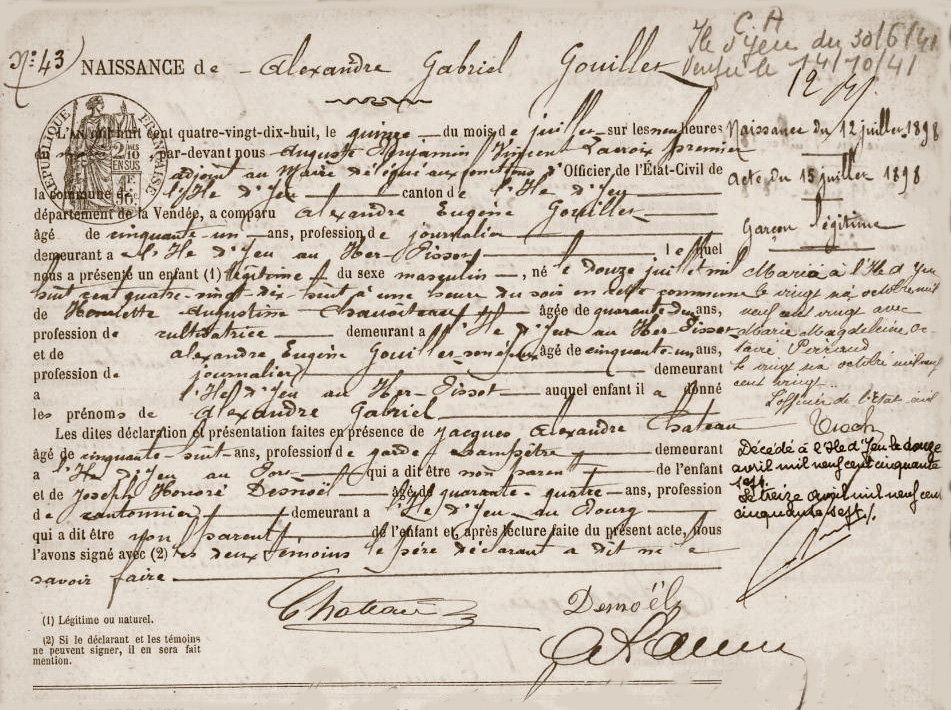 C. A
Ile d'Yeu du 30/6/41
Vendée le 14/10/41
N° 43 NAISSANCE de - Alexandre Gabriel Gouillet
RÉPUBLIQUE FRANÇAISE
2/10 EN SUS
L'AN mil huit cent quatre-vingt-dix-huit, le quinze du mois de juillet sur les neuf heures
par-devant nous Auguste Benjamin Vincent Lacroix premier
adjoint au Maire délégué aux fonctions d'Officier de l'État-Civil de
la commune de l'Ile d'Yeu canton de l'Ile d'Yeu
département de la Vendée, a comparu Alexandre Eugène Gouillet
âgé de cinquante-un ans, profession de journalier
demeurant à l'Ile d'Yeu au Ker-Pissot lequel
nous a présenté un enfant (1) légitime du sexe masculin, né le douze juillet mil
huit cent quatre-vingt-dix-huit à une heure du soir en cette commune
de Henriette Augustine âgée de quarante ans,
profession de cultivatrice demeurant à l'Ile d'Yeu au Ker-Pissot
et de Alexandre Eugène Gouillet son époux âgé de cinquante-un ans,
profession de journalier demeurant
à l'Ile d'Yeu au Ker-Pissot auquel enfant il a donné
les prénoms de Alexandre Gabriel
Les dites déclaration et présentation faites en présence de Jacques Alexandre Chateau
âgé de cinquante huit ans, profession de garde champêtre demeurant
à l'Ile d'Yeu au Port qui a dit être non parent de l'enfant
et de Joseph Honoré Desnoël âgé de quarante-quatre ans, profession
de cantonnier demeurant à l'Ile d'Yeu au Bourg
qui a dit être non parent de l'enfant et après lecture faite du présent acte, nous
l'avons signé avec (2) les deux témoins le père déclarant a dit ne le
savoir faire.
Chateau
Desnoël
(1) Légitime ou naturel.
(2) Si le déclarant et les témoins
ne peuvent signer, il en sera fait
mention.
Naissance du 12 juillet 1898
Acte du 15 juillet 1898
Garçon légitime
Marié à l'Ile d'Yeu
le vingt six octobre mil
neuf cent vingt avec
Marie Magdeleine Oc-
tavie Perraud
le vingt six octobre mil neuf
cent vingt.
L'officier de l'état civil
Décédé à l'Ile d'Yeu le douze
avril mil neuf cent cinquante
sept.
Le treize avril mil neuf cent
cinquante sept.